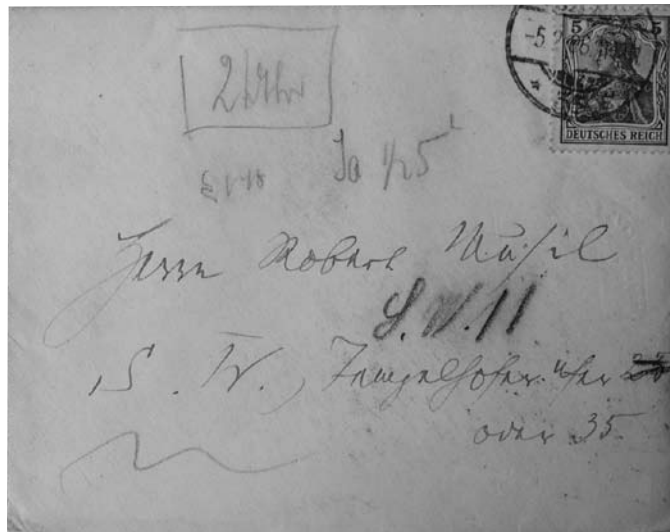 5 5
-5.2.06
DEUTSCHES REICH
2 Uhr
Ja 1/25
Herrn Robert Musil
S.W.11
S. W., Tempelhofer Ufer
oder 35